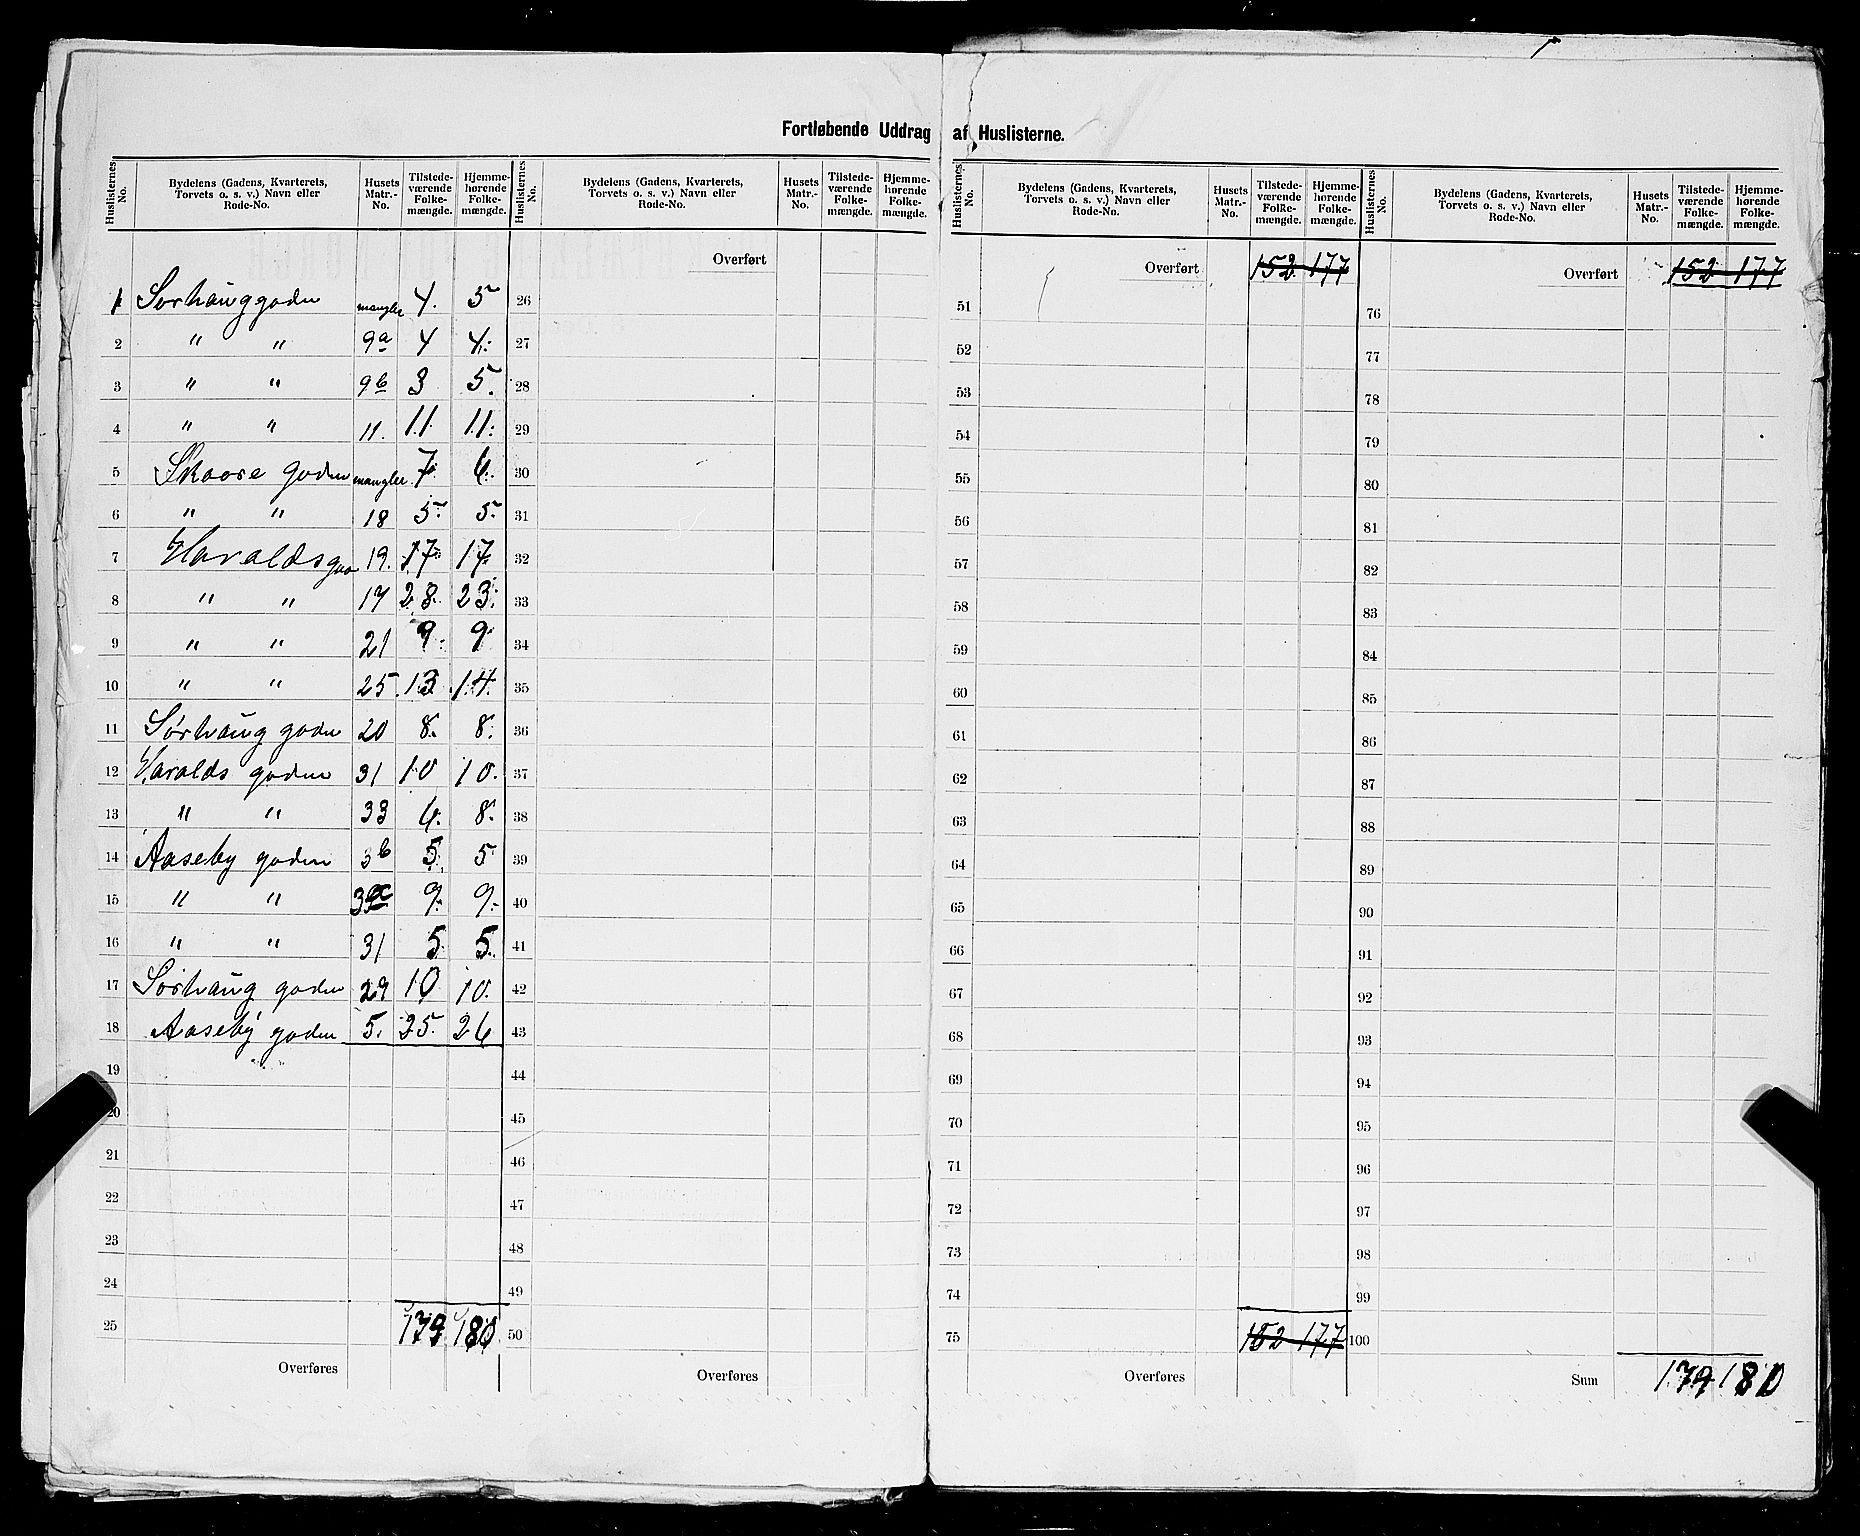 Fortløbende Uddrag af Huslisterne.
Huslisternes No. | Bydelens (Gadens, Kvarterets, Torvets o. s. v.) Navn eller Rode-No. | Husets Matr.-No. | Tilstede-værende Folke-mængde. | Hjemme-hørende Folke-mængde.
1 Sørhauggaden mangler 4. 5
2 " " 9a 4 4.
3 " " 9b 3 5.
4 " " 11. 11. 11.
5 Skaare gaden mangler 7. 6.
6 " " 18 5. 5.
7 Haraldsgaa 19. 17. 17.
8 " " 17 28. 23.
9 " " 21 9. 9.
10 " " 25 13. 14.
11 Sørhaug gaden 20 8. 8.
12 Haralds gaden 31 10 10.
13 " " 33 6. 8.
14 Aaseby gaden 3b 5. 5
15 " " 9. 9.
16 " " 31 5 5.
17 Sørhaug gaden 29 10 10.
18 Aaseby gaden 5. 25. 26
19
20
21
22
23
24
25
179 180
Overføres
Huslisternes No. | Bydelens (Gadens, Kvarterets, Torvets o. s. v.) Navn eller Rode-No. | Husets Matr.-No. | Tilstede-værende Folke-mængde. | Hjemme-hørende Folke-mængde.
Overført
26
27
28
29
30
31
32
33
34
35
36
37
38
39
40
41
42
43
44
45
46
47
48
49
50
Overføres
Huslisternes No. | Bydelens (Gadens, Kvarterets, Torvets o. s. v.) Navn eller Rode-No. | Husets Matr.-No. | Tilstede-værende Folke-mængde. | Hjemme-hørende Folke-mængde.
Overført 152 177
51
52
53
54
55
56
57
58
59
60
61
62
63
64
65
66
67
68
69
70
71
72
73
74
75
152 177
Overføres
Huslisternes No. | Bydelens (Gadens, Kvarterets, Torvets o. s. v.) Navn eller Rode-No. | Husets Matr.-No. | Tilstede-værende Folke-mængde. | Hjemme-hørende Folke-mængde.
Overført 152 177
76
77
78
79
80
81
82
83
84
85
86
87
88
89
90
91
92
93
94
95
96
97
98
99
100
Sum 179 180